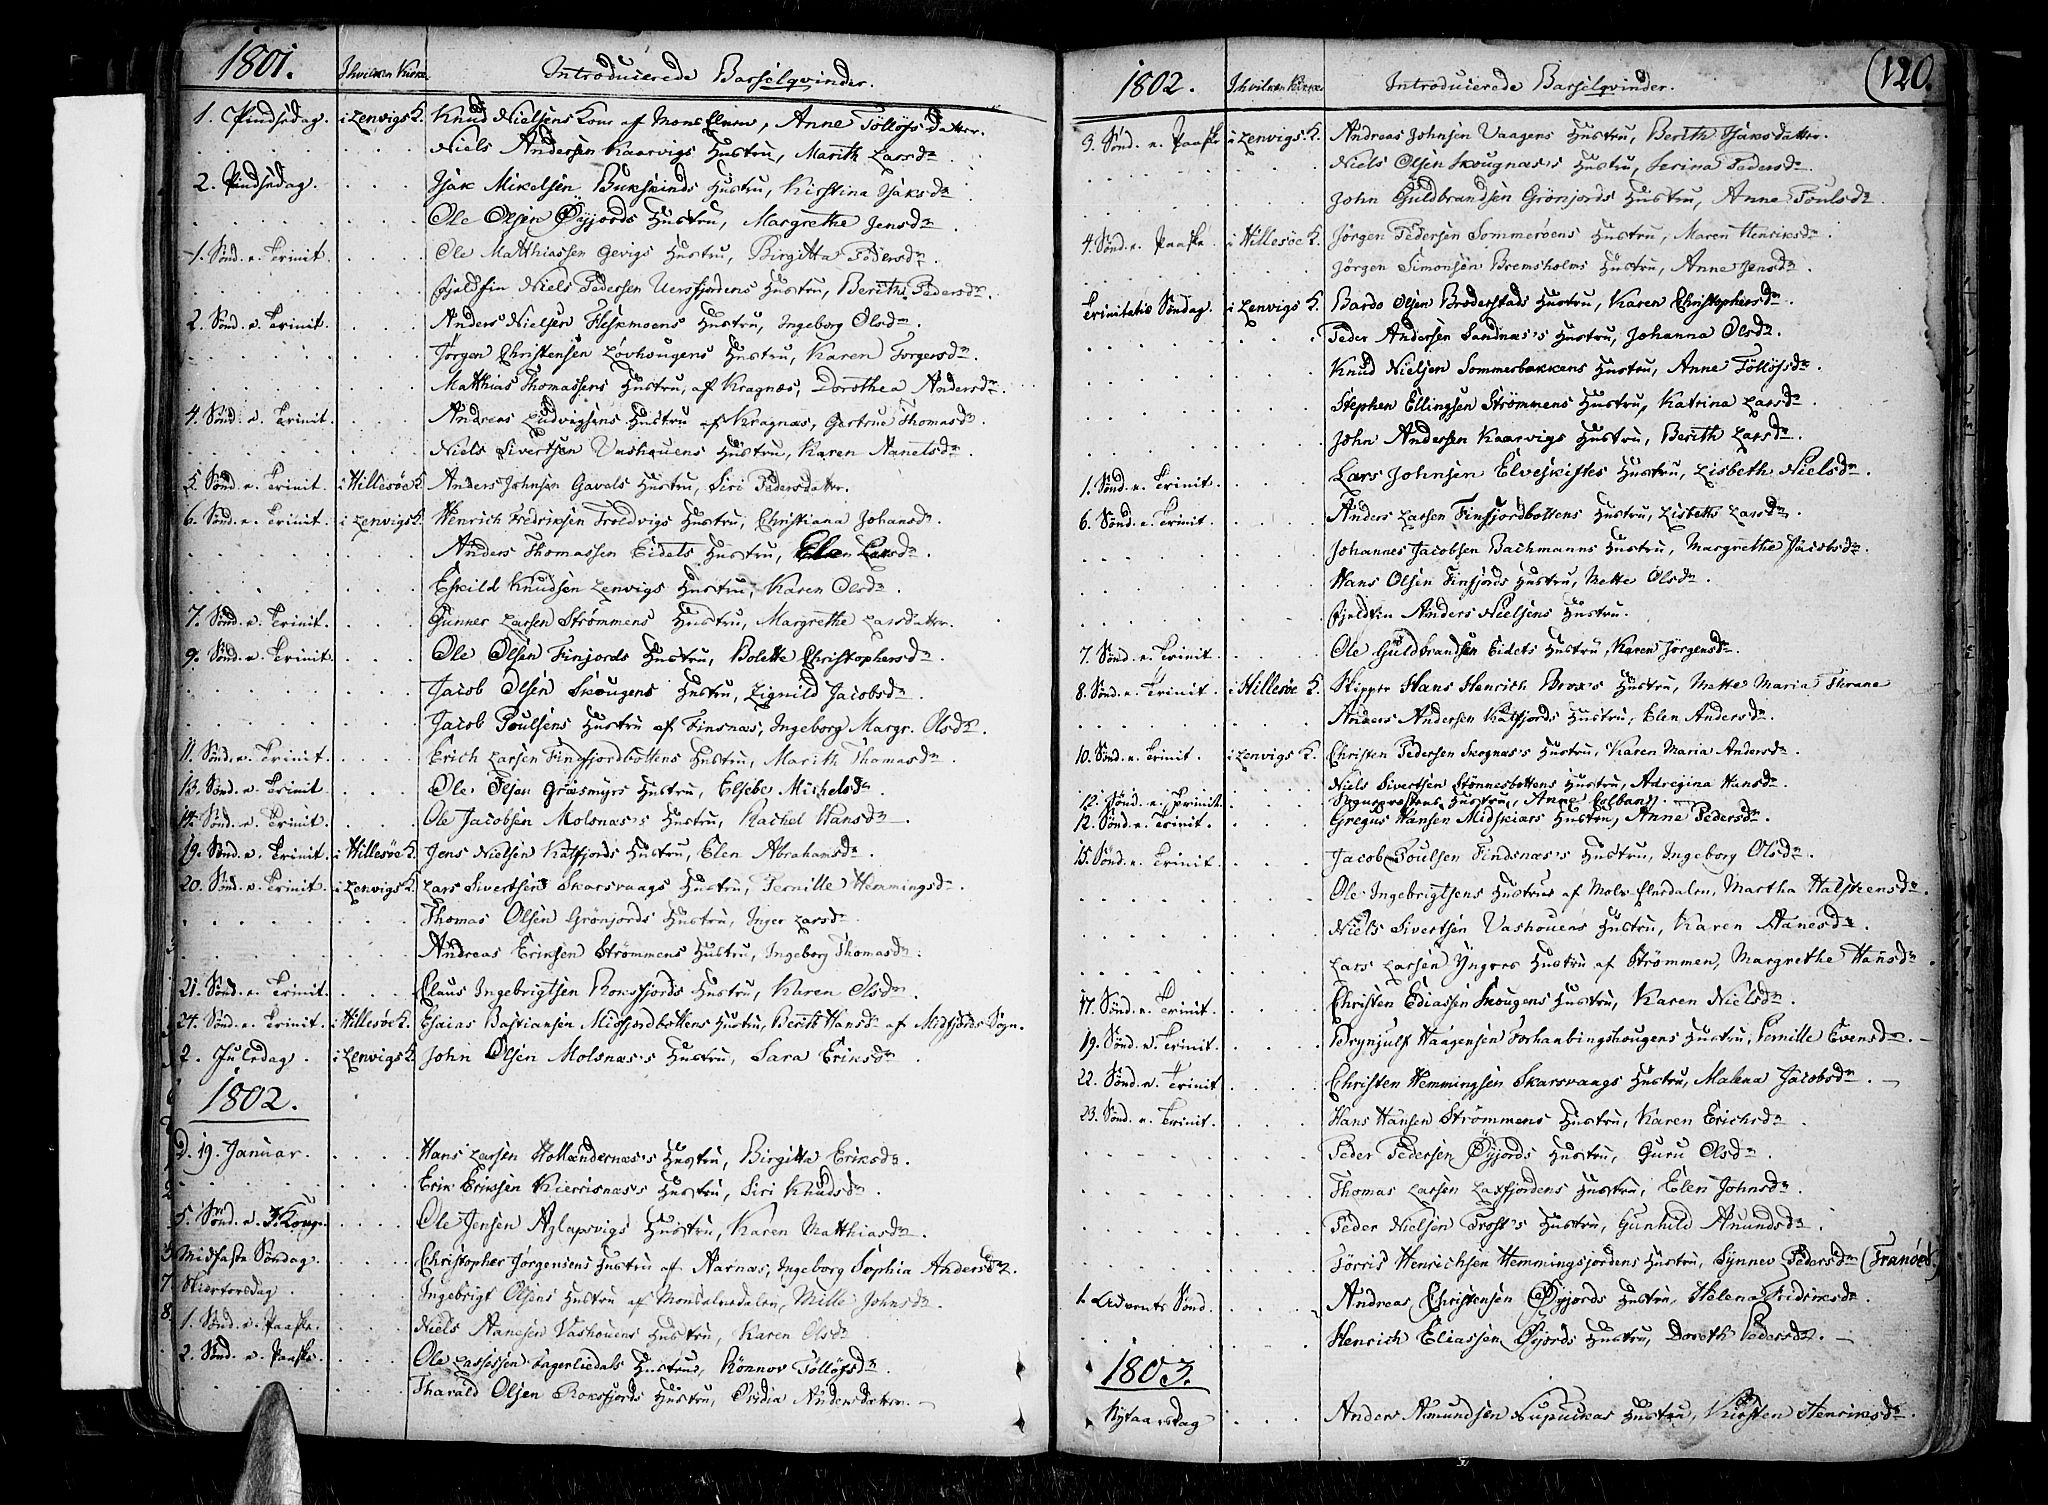 1801. I hvilken Kirke. Introducerede Barselqvinder.
1. Pindsedag. i Lenvigs K. Knud Nielsens Kone af Mons Elven, Anne Tølløfsdatter.
Niels Andersen Kaarvigs Hustru, Marith Larsdr.
2. Pindsedag. Isak Mikelsen Bukskinds Hustru, Kirstina Isaksdr.
Ole Olsen Øyjords Hustru, Margrethe Jensdr.
1. Sønd. e. Trinit. Ole Matthiassen Gevigs Hustru, Birgitta Pedersdr.
Fjeldfin Niels Pedersen Uersfjordens Hustru, Berith Pedersdr.
2. Sønd. e. Trinit. Anders Nielsen Fleskmoens Hustru, Ingeborg Olsdr.
Jørgen Christensen Løvhougens Hustru, Karen Torgersdr.
Matthias Thomassens Hustru, af Kragnæs, Dorothea Andersdr.
4. Sønd. e. Trinit. Andreas Ludvigsens Hustru af Kragnæs, Gertrue Thomasd.
Niels Sivertsen Vashouens Hustru, Karen Nanelsdr.
5. Sønd. e. Trinit. i Hillesøe K. Anders Johnsen Gavals Hustru, Siri Pedersdatter.
6. Sønd. e. Trinit. i Lenvigs K. Henrich Fredriksen Troldvigs Hustru, Christiana Johansdr.
Anders Thomassen Eidets Hustru, Elen Larsdr.
Eskild Knudsen Lenvigs Hustru, Karen Olsdr.
7. Sønd. e. Trinit. Gunner Larsen Strømmens Hustru, Margrethe Larsdatter.
9. Sønd. e. Trinit. Ole Olsen Finjords Hustru, Bolette Christophersdr.
Jacob Olsen Skougens Hustru, Zignild Jacobsdr.
Jacob Poulsens Hustru af Finsnæs, Ingeborg Margr. Olsdr.
11. Sønd. e. Trinit. Erich Larsen Finfjordbottens Hustru, Marith Thomasdr.
13. Sønd. e. Trinit. Ole Olsen Græsmyrs Hustru, Elsebe Michelsdr.
14. Sønd. e. Trinit. Ole Jacobsen Molsnæs's Hustru, Rachel Hansdr.
19. Sønd. e. Trinit. i Hillesøe K. Jens Nielsen Katfjords Hustru, Elen Abrahamsdr.
20. Sønd. e. Trinit. i Lenvigs K. Lars Sivertsens Skarsvaags Hustru, Pernille Hemmingsd.
Thomas Olsen Grønjords Hustru, Inger Larsdr.
Andreas Eriksen Strømmens Hustru, Ingeborg Thomasdr.
21. Sønd. e. Trinit. Claus Ingebrigtsen Roksfjords Hustru, Karen Olsdr.
24. Sønd. e. Trinit. i Hillesøe K. Esaias Bastiansen Midfjordbottens Hustru, Berith Hansdr af Midfjords Sogn.
2. Juledag. i Lenvigs K. John Olsen Molsnæs's Hustru, Sara Eriksdr.
1802.
D. 19. Januar. Hans Larsen Hollændernæs's Hustru, Birgitta Eriksdr.
Erik Eriksen Kierrisnæs's Hustru, Siri Knudsdr.
5. Sønd. e. 3. Kong. Ole Jensen Aglapsvigs Hustru, Karen Matthiasdr.
Midfaste Søndag. Christopher Jørgensens Hustru af Aarnæs, Ingeborg Sophia Andersdr.
Skiertorsdag. Ingebrigt Olsens Hustru af Monselvedalen, Mille Johnsdr.
1. Sønd. e. Paaske. Niels Aanesen Vashouens Hustru, Karen Olsdr
2. Sønd. e. Paaske. Ole Lassesen Fagerliedals Hustrue, Rønnov Tølløfsdr
Tharald Olsen Roksfjords Hustru, Pridia Andersdatter.
1802. I hvilken Kirke. Introducerede Barselqvinder. 120.
3. Sønd. e. Paaske i Lenvigs K. Andreas Johnsen Vaagens Hustru, Berith Isaksdatter.
Niels Olsen Skougnæs's Hustru, Serina Pedersdr.
John Guldbrandsen Grønjords Hustru, Anne Poulsdr
4. Sønd. e. Paaske. i Hillesøe K. Jørgen Pedersen Sommerøens Hustru, Maren Henriksdr.
Jørgen Simonsen Bremsholms Hustru, Anne Jensdr.
Trinitatis Søndag. i Lenvigs K. Bardo Olsen Broderstads Hustru, Karen Christophersdr.
Peder Andersen Sandnæs's Hustru, Johanna Olsdr.
Knud Nielsen Sommerbakkens Hustru, Anne Tølløfsdr.
Stephen Ellingsen Strømmens Hustru, Katrina Larsdr.
John Andersen Kaarvigs Hustru, Berith Larsdr.
1. Sønd. e. Trinit. Lars Johnsen Elveskistes Hustru, Lisbeth Nielsdr.
6. Sønd. e. Trinit. Anders Larsen Finfjordbottens Hustru, Lisbeth Larsdr.
Johannes Jacobsen Bachmanns Hustru, Margrethe Jacobsdr.
Hans Olsen Finfjords Hustru, Mette Olsdr.
Fjeldfin Anders Nielsens Hustru.
7. Sønd. e. Trinit. Ole Guldbrandsen Eidets Hustru, Karen Jørgensdr.
8. Sønd. e. Trinit. i Hillesøe K. Skipper Hans Henrich Brox's Hustru, Mette Maria Thrane
Anders Andersen Katfjords Hustru, Elen Andersdr.
10. Sønd. e. Trinit. i Lenvigs K. Christen Pedersen Skognæs's Hustru, Karen Maria Andersdr.
Niels Sivertsen Stønnesbottens Hustru, Adregina Hansdr.
12. Sønd. e. Trinit. Sogneprestens Hustru, Anne Colban.
12. Sønd. e. Trinit. Gregus Hansen Midskiærs Hustru, Anne Pedersdr.
15. Sønd. e. Trinit. Jacob Poulsen Findsnæs's Hustru, Ingeborg Olsdr.
Ole Ingebrigtsens Hustrue af Mols Elvedalen, Martha Halsteensdr.
Niels Sivertsen Vashouens Hustru, Karen Aanesdr.
Lars Larsen Yngres Hustru af Strømmen, Margrethe Hansdr.
17. Sønd. e. Trinit. Christen Ediassen Skougens Hustru, Karen Nielsdr.
19. Sønd. e. Trinit. Brynjulf Haagensen Forhanbingshougens Hustru, Pernille Evensdr.
22. Sønd. e. Trinit Christen Hemmingsen Skarsvaags Hustru, Malena Jacobsdr.
23. Sønd. e. Trinit. Hans Hansen Strømmens Hustru, Karen Erichsdr.
Peder Pedersen Øyjords Hustru, Guru Olsdr
Thomas Larsen Laxfjordens Hustru, Elen Johnsdr.
Peder Nielsen Trost's Hustru, Gunhild Amundsdr.
Tørris Henrichsen Hemmingsjordens Hustru, Synnev Pedersdr (Tranøe)
1. Advents Sønd. Andreas Christensen Øyjords Hustru, Helena Fridriksdr.
Henrich Eliassen Øyjords Hustru, Doroth Pedersdr.
1803.
Nytaarsdag Anders Amundsen Hustru, Kirsten Henriksdr.